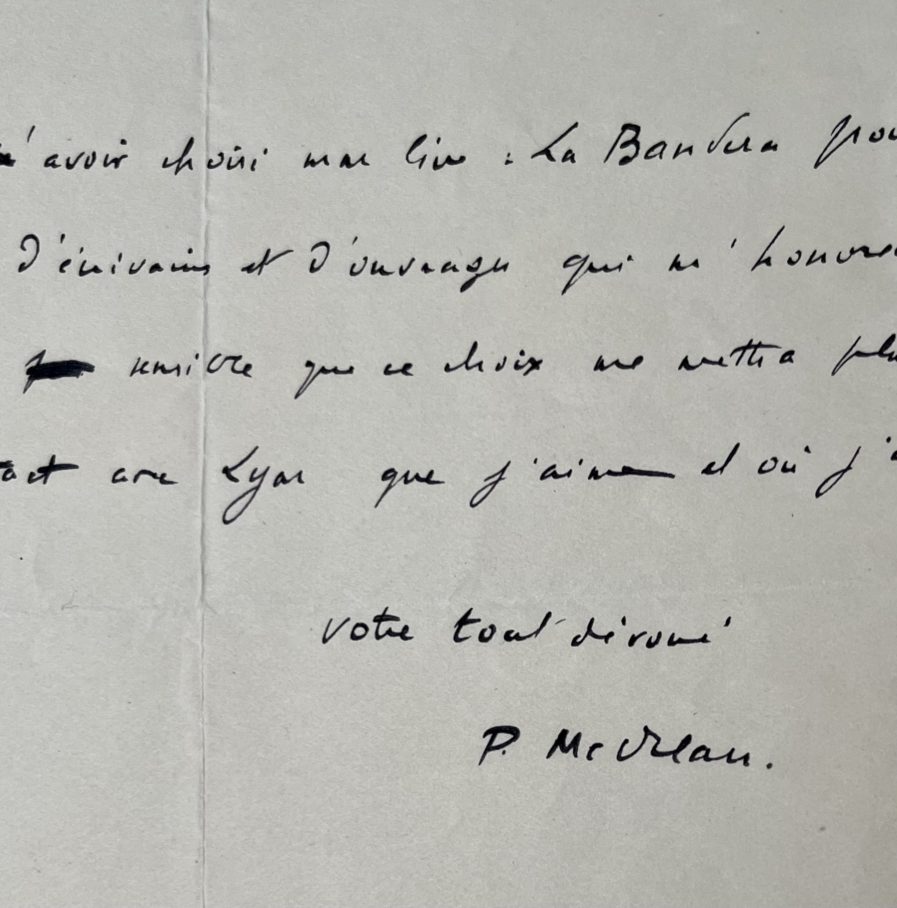 m'avoir choisi mon livre : La Bandera pou
d'écrivains et d'ouvrages qui m'honore
sensible que ce choix me mettra plu
tact avec Lyon que j'aime et où j'a
votre tout dévoué
P. Mc Orlan.